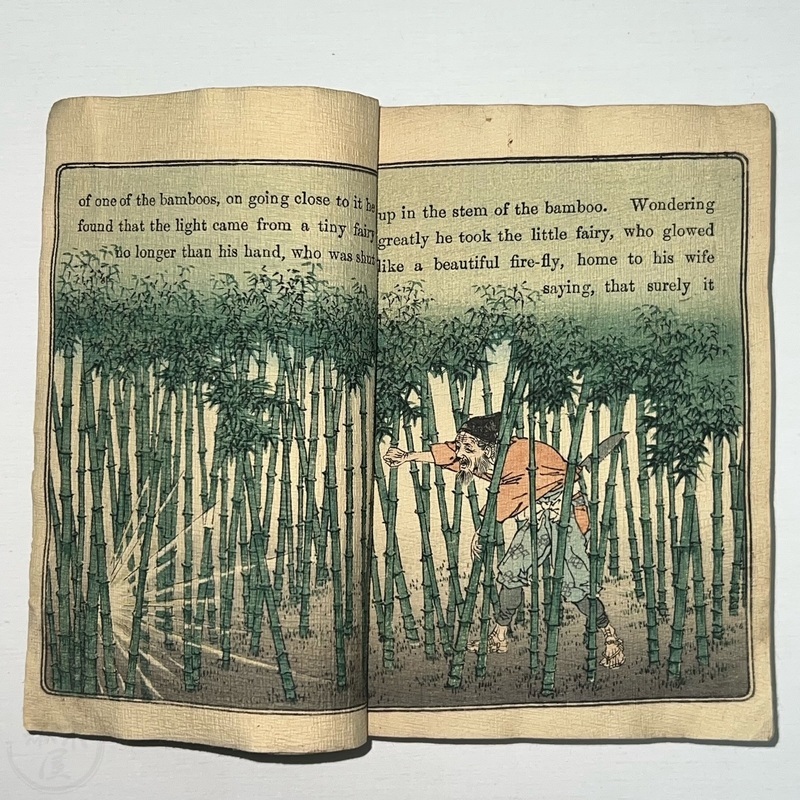 of one of the bamboos, on going close to it he
found that the light came from a tiny fairy
no longer than his hand, who was shut
up in the stem of the bamboo. Wondering
greatly he took the little fairy, who glowed
like a beautiful fire-fly, home to his wife
saying, that surely it